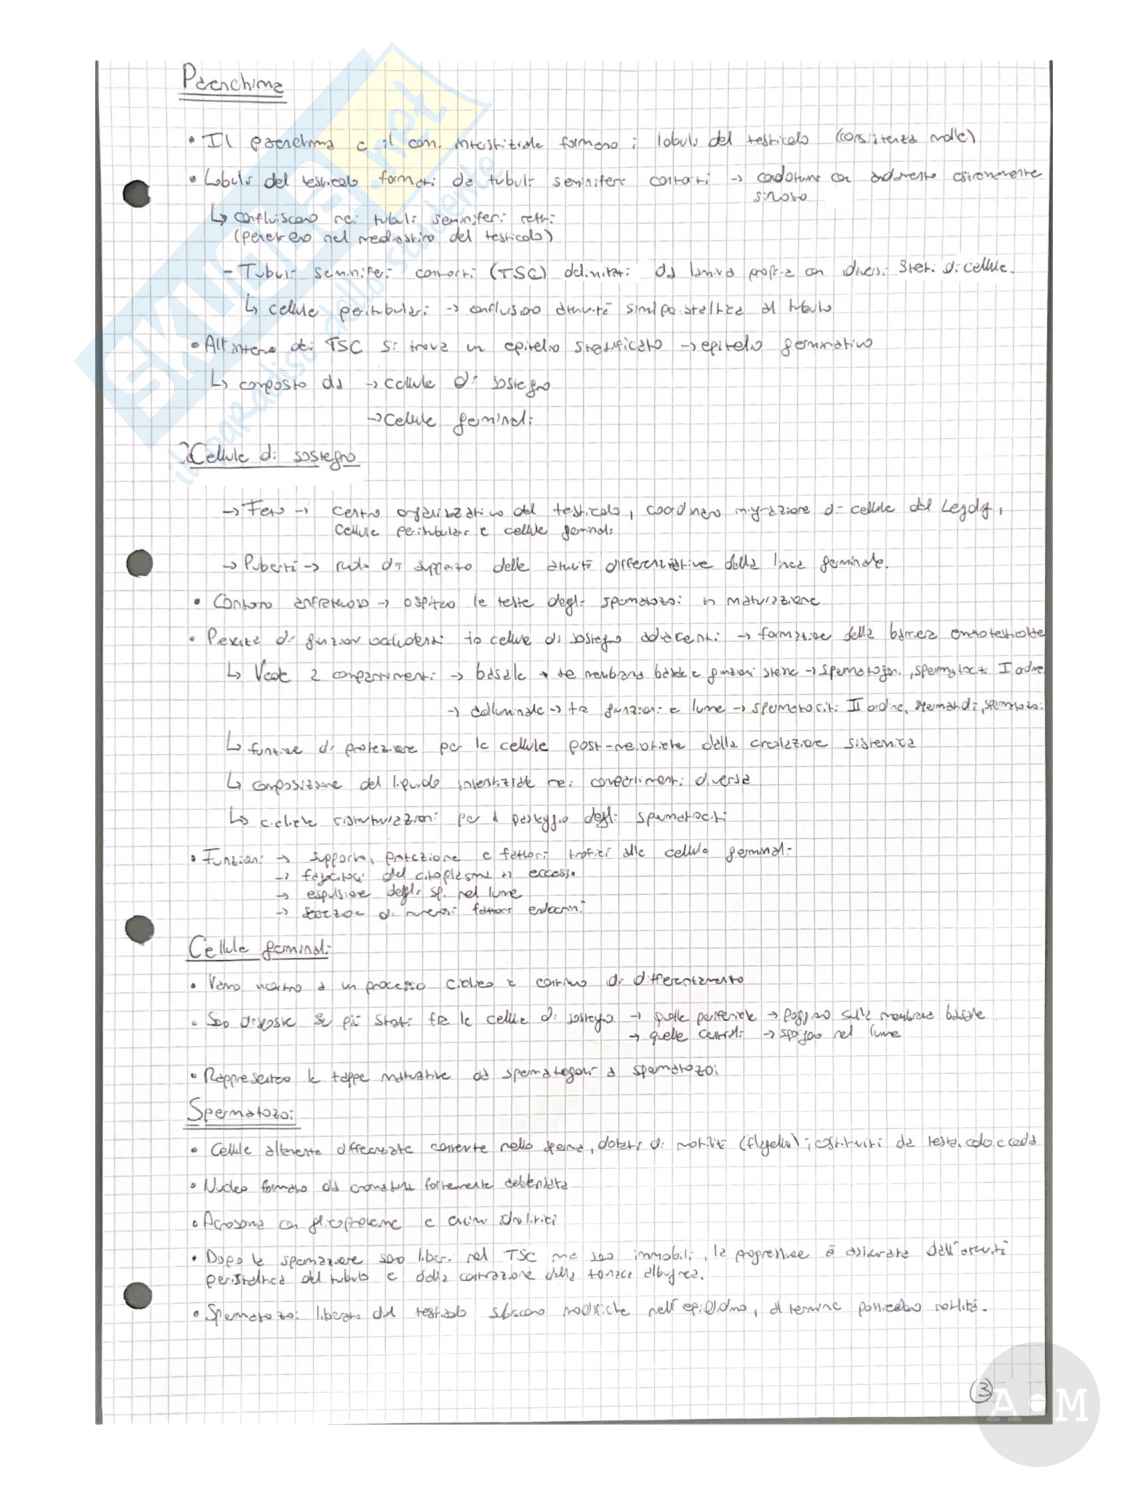 Parenchima
• Il parenchima e il conn. interstiziale formano i lobuli del testicolo (consistenza molle)
• Lobuli del testicolo formati da tubuli seminiferi contorti → condotti con andamento estremamente
sinuoso
↳ confluiscono nei tubuli seminiferi retti
(penetrano nel mediastino del testicolo)
- Tubuli seminiferi contorti (TSC) delimitati da lamina propria con diversi strati di cellule.
↳ cellule peritubulari → attività simil peristaltica al tubulo
• All'interno dei TSC si trova un epitelio stratificato → epitelio germinativo
↳ composto da → cellule di sostegno
→ cellule germinali
Cellule di sostegno
→ Feto → centro organizzativo del testicolo, coordinano migrazione di cellule del Leydig,
cellule peritubulari e cellule germinali
→ Pubertà → ruolo di supporto delle attività differenziative della linea germinale.
• Contorno → ospitano le teste degli spermatozoi in maturazione
• Presenza di giunzioni occludenti tra cellule di sostegno adiacenti → formazione della barriera ematotesticolare
↳ 2 compartimenti → basale → tra membrana basale e giunzioni strette → spermatogoni, spermatociti I ordine
→ adluminale → tra giunzioni e lume → spermatociti II ordine, spermatidi, spermatozoi
↳ funzione di protezione per le cellule post-meiotiche dalla circolazione sistemica
↳ composizione del liquido interstiziale nei compartimenti diversa
↳ cicliche ristrutturazioni per il passaggio degli spermatociti
• Funzioni → supporto, protezione e fattori trofici alle cellule germinali
→ fagocitosi del citoplasma in eccesso
→ espulsione degli sp. nel lume
→ secrezione di numerosi fattori endocrini
Cellule germinali
• Vanno incontro a un processo ciclico e continuo di differenziamento
• Sono disposte su più strati fra le cellule di sostegno → quelle periferiche → poggiano sulla membrana basale
→ quelle centrali → sporgono nel lume
• Rappresentano le tappe maturative da spermatogoni a spermatozoi
Spermatozoi
• Cellule altamente differenziate contenute nello sperma, dotati di motilità (flagello); costituiti da testa, collo e coda
• Nucleo formato da cromatina fortemente addensata
• Acrosoma con glicoproteine e enzimi idrolitici
• Dopo la spermiazione sono liberi nel TSC ma sono immobili, la progressione è assicurata dall'attività
peristaltica del tubulo e dalla contrazione della tonaca albuginea.
• Spermatozoi liberati dal testicolo subiscono modifiche nell'epididimo, al termine possiedono motilità.
3
SKUOLA.net
il paradiso dello studente
A M